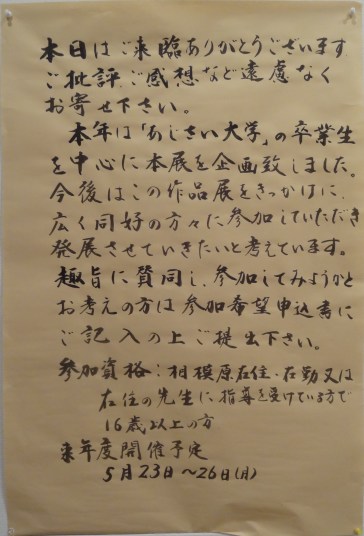 本日はご来臨ありがとうございます
ご批評、ご感想など遠慮なく
お寄せ下さい。
本年は「あじさい大学」の卒業生
を中心に本展を企画致しました。
今後はこの作品展をきっかけに、
広く同好の方々に参加していただき
発展させていきたいと考えています。
趣旨に賛同し、参加してみようかと
お考えの方は参加希望申込書に
ご記入の上ご提出下さい。
参加資格：相模原在住・在勤又は
在住の先生に指導を受けている方で
16歳以上の方
来年度開催予定
5月23日～26日(月)